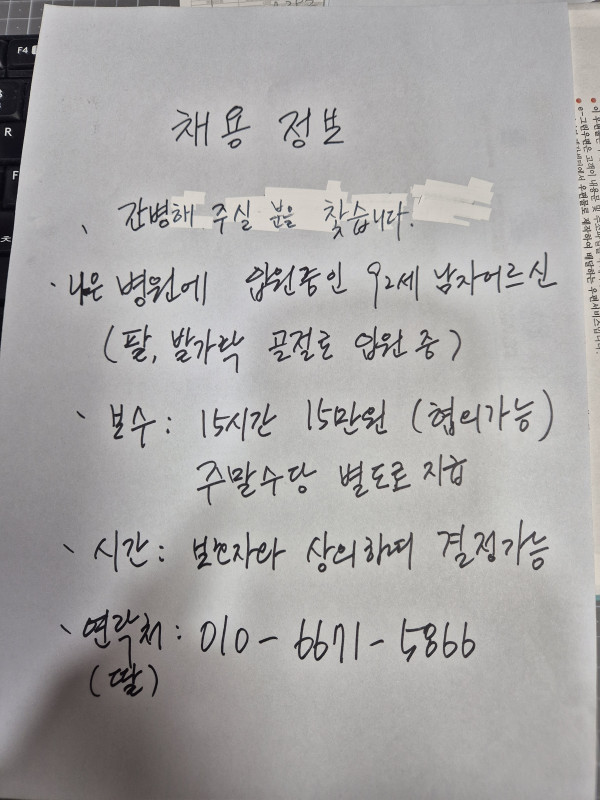 채용 정보
、 간병해 주실 분을 찾습니다.
· 나은 병원에 입원중인 92세 남자어르신
(팔, 발가락 골절로 입원 중)
、 보수 : 15시간 15만원 (협의가능)
주말수당 별도로 지급
、 시간 : 보호자와 상의하며 결정가능
、 연락처 : 010-6671-5866
(딸)
F4
R